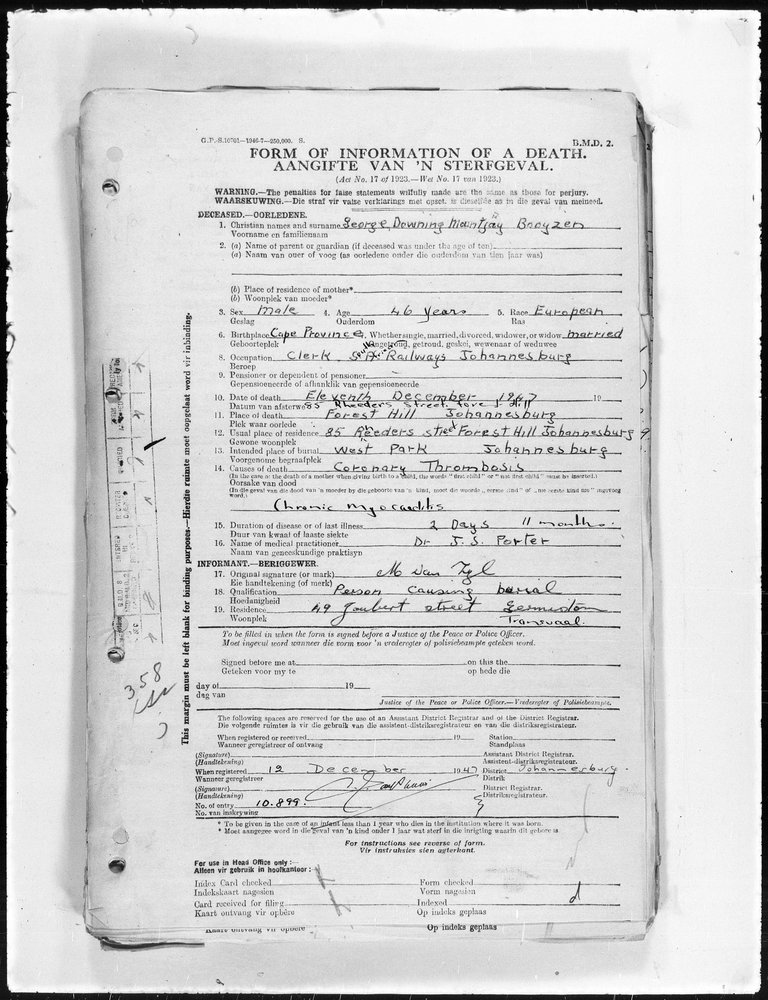 G.P.-S.10701—1946-7—250,000. S.
B.M.D. 2.
FORM OF INFORMATION OF A DEATH.
AANGIFTE VAN 'N STERFGEVAL.
(Act No. 17 of 1923.—Wet No. 17 van 1923.)
WARNING.—The penalties for false statements wilfully made are the same as those for perjury.
WAARSKUWING.—Die straf vir valse verklarings met opset, is dieselfde as in die geval van meineed.
DECEASED.—OORLEDENE.
1. Christian names and surname George Downing Mountjoy Booyzen
Voorname en familienaam
2. (a) Name of parent or guardian (if deceased was under the age of ten)
(a) Naam van ouer of voog (as oorledene onder die ouderdom van tien jaar was)
(b) Place of residence of mother*
(b) Woonplek van moeder*
3. Sex Male 4. Age 46 years 5. Race European
Geslag Ouderdom Ras
6. Birthplace Cape Province 7. Whether single, married, divorced, widower, or widow married
Geboorteplek Ongetroud, getroud, geskei, wewenaar of weduwee
8. Occupation Clerk Railways Johannesburg
Beroep
9. Pensioner or dependent of pensioner
Gepensioneerde of afhanklik van gepensioneerde
10. Date of death Eleventh December 1947 19
Datum van afsterwe 85 Rheeders Street
11. Place of death Forest Hill Johannesburg
Plek waar oorlede
12. Usual place of residence 85 Reeders street Forest Hill Johannesburg
Gewone woonplek
13. Intended place of burial West Park Johannesburg
Voorgenome begraafplek
14. Causes of death Coronary Thrombosis
(In the case of the death of a mother when giving birth to a child, the words "first child" or "not first child" must be inserted.)
Oorsake van dood
(In die geval van die dood van 'n moeder by die geboorte van 'n kind, moet die woorde "eerste kind" of "nie eerste kind nie" ingevoeg
word.)
Chronic Myocarditis
15. Duration of disease or of last illness 2 Days 11 months.
Duur van kwaal of laaste siekte
16. Name of medical practitioner Dr J. S. Porter
Naam van geneeskundige praktisyn
INFORMANT.—BERIGGEWER.
17. Original signature (or mark) M van Zyl
Eie handtekening (of merk)
18. Qualification Person causing burial
Hoedanigheid
19. Residence 49 Joubert street Germiston
Woonplek Transvaal.
To be filled in when the form is signed before a Justice of the Peace or Police Officer.
Moet ingevul word wanneer die vorm voor 'n vrederegter of polisiebeampte geteken word.
Signed before me at on this the
Geteken voor my te op hede die
day of 19
dag van
Justice of the Peace or Police Officer.—Vrederegter of Polisiebeampte.
The following spaces are reserved for the use of an Assistant District Registrar and of the District Registrar.
Die volgende ruimtes is vir die gebruik van die assistent-distriksregistrateur en van die distriksregistrateur.
When registered or received 19 Station
Wanneer geregistreer of ontvang Standplaas
(Signature) Assistant District Registrar.
(Handtekening) Assistent-distriksregistrateur.
When registered 12 December 1947 District Johannesburg.
Wanneer geregistreer Distrik
(Signature) District Registrar.
(Handtekening) Distriksregistrateur.
No. of entry 10.899.
No. van inskrywing
* To be given in the case of an infant less than 1 year who dies in the institution where it was born.
* Moet aangegee word in die geval van 'n kind onder 1 jaar wat sterf in die inrigting waarin dit gebore is
For instructions see reverse of form.
Vir instruksies sien agterkant.
For use in Head Office only :—
Alleen vir gebruik in hoofkantoor :
Index Card checked Form checked
Indekskaart nagesien Vorm nagesien
Card received for filing Indexed
Kaart ontvang vir opbêre Op indeks geplaas
Kaart ontvang vir opbêre Op indeks geplaas
This margin must be left blank for binding purposes.—Hierdie ruimte moet oopgelaat word vir inbinding.
358